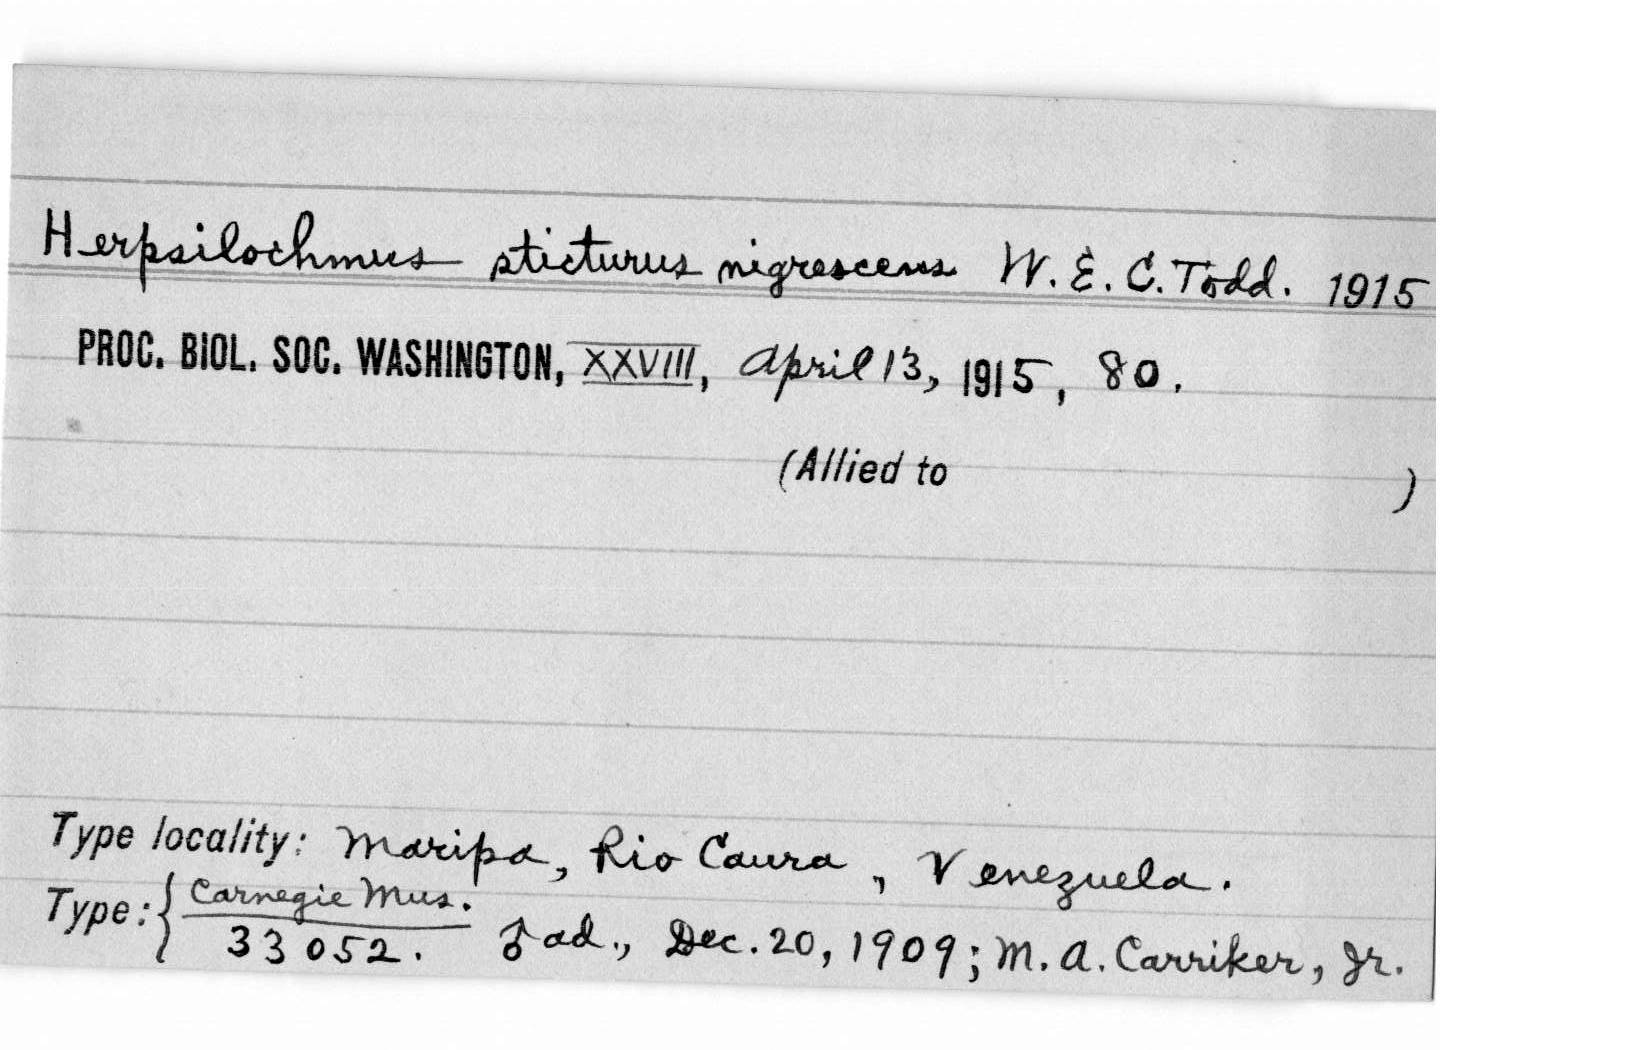 Herpsilochmus sticturus nigrescens W. E. C. Todd. 1915
PROC. BIOL. SOC. WASHINGTON, XXVIII, April 13, 1915, 80.
(Allied to )
Type locality: Maripa, Rio Caura, Venezuela.
Type: { Carnegie Mus.
33052. ♂ ad., Dec. 20, 1909; M. A. Carriker, Jr.